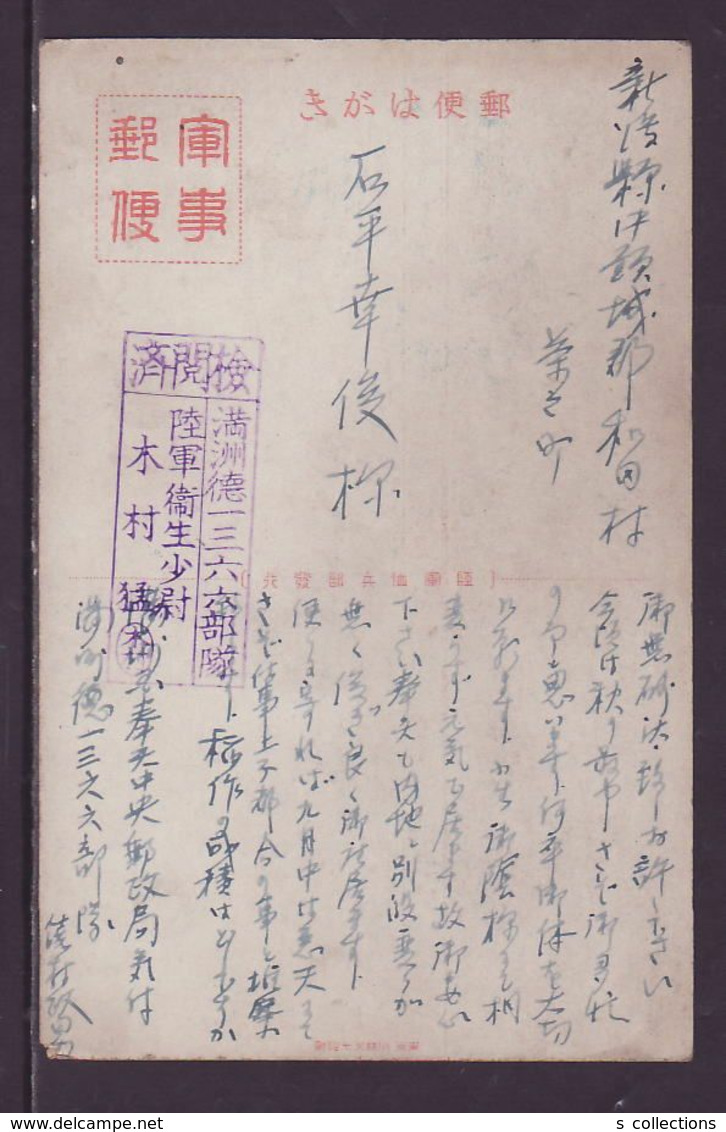 郵便はがき
軍事郵便
新潟縣中頸城郡和田村
石平幸俊様
検閲済
満洲徳一三六六部隊
陸軍衛生少尉
木村猛
陸軍恤兵部發行
御無砂汰致しお許し下さい
今頃は秋の最中さぞ御多忙
の事と思います何卒御体を大切
に
小生御陰様にて相
変らず元気で居ます故御安心
下さい奉天も内地と別段変りが
無く
良く御
居ます
便りに
九月中は悪天にて
さぞ仕事上不都合の事と推察
稲作の成積はどうですか
奉天中央郵政局気付
満州徳一三六六部隊
s collections